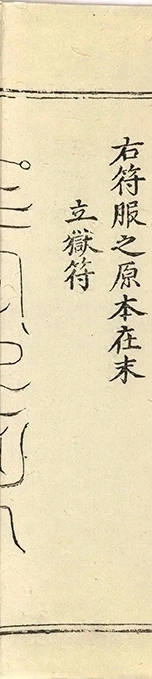 右符服之原本在末
立獄符